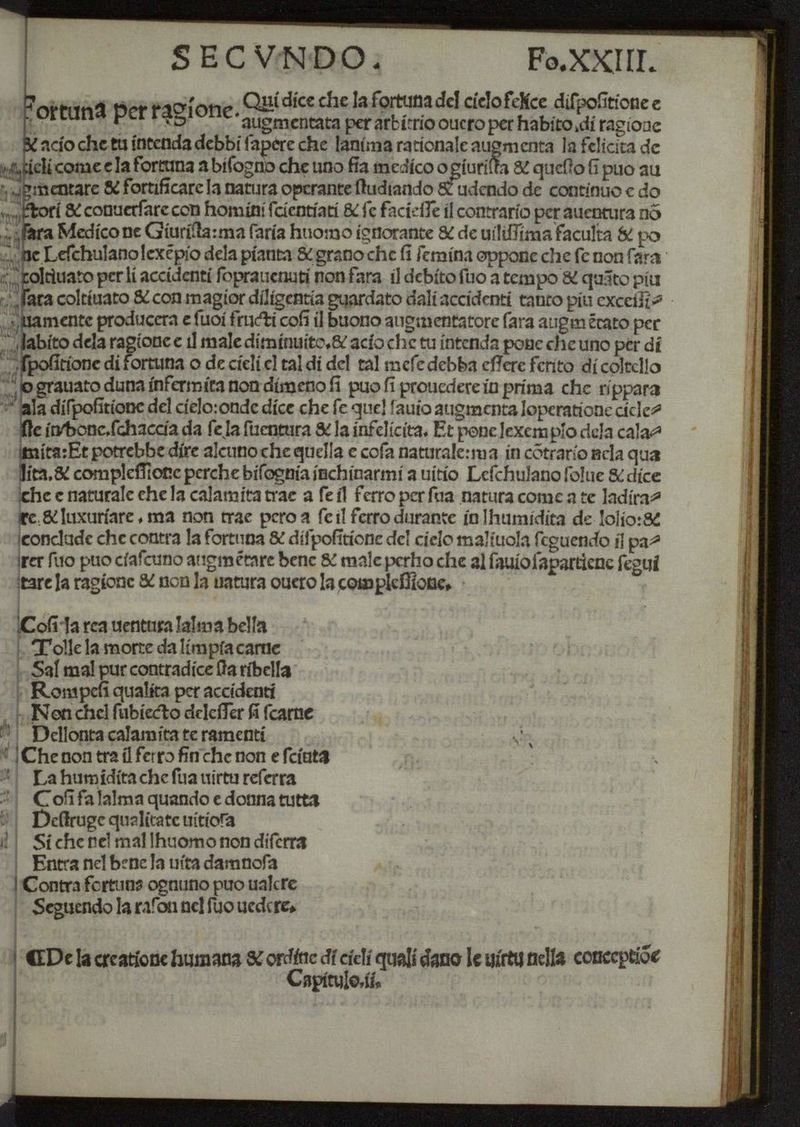 SECVNDO. Fo.XXIII.
Fortuna per ragione. Qui dice che la fortuna del cielo felice dispositione e
augmentata per arbitrio ouero per habito di ragione
& acio che tu intenda debbi sapere che lanima rationale augmenta la felicita de
cieli come e la fortuna a bisogno che uno sia medico o giurista & questo si puo au
gmentare & fortificare la natura operante studiando & udendo de continuo e do
ctori & conuersare con homini scientiati & se faciesse il contrario per auentura nō
sara Medico ne Giurista:ma saria huomo ignorante & de uilissima faculta & po
ne Leschulano lexēpio dela pianta & grano che si semina oppone che se non sara
coltiuato per li accidenti soprauenuti non fara il debito suo a tempo & quāto piu
sara coltiuato & con magior diligentia guardato dali accidenti tanto piu excessi-
uamente producera e suoi fructi cosi il buono augmentatore sara augmētato per
labito dela ragione e il male diminuito.& acio che tu intenda pone che uno per di
spositione di fortuna o de cieli el tal di del tal mese debba essere ferito di coltello
o grauato duna infermita non dimeno si puo si prouedere in prima che rippara
ala dispositione del cielo:onde dice che se quel sauio augmenta loperatione ciele-
ste in bone.schaccia da se la suentura & la infelicita. Et pone lexemplo dela cala-
mita:Et potrebbe dire alcuno che quella e cosa naturale:ma in cōtrario nela qua
lita.& complessione perche bisognia inchinarmi a uitio Leschulano solue & dice
che e naturale che la calamita trae a se il ferro per sua natura come a te ladira-
re.& luxuriare , ma non trae pero a se il ferro durante in lhumidita de lolio:&
conclude che contra la fortuna & dispositione del cielo maliuola seguendo il pa-
rer suo puo ciascuno augmētare bene & male perho che al sauio sapartiene segui
tare la ragione & non la natura ouero la complessione.
Cosi la rea uentura lalma bella
Tolle la morte da limpia carne
Sal mal pur contradice sta ribella
Rompesi qualita per accidenti
Non chel subiecto delesser si scarne
Dellonta calamita te ramenti
Che non tra il ferro fin che non e sciuta
La humidita che sua uirtu reserra
Cosi fa lalma quando e donna tutta
Destruge qualitate uitiosa
Si che nel mal lhuomo non diserra
Entra nel bene la uita damnosa
Contra fortuna ognuno puo ualere
Seguendo la rason nel suo uedere.
¶De la creatione humana & ordine di cieli quali dano le uirtu nella conceptiōe
Capitulo.ii.